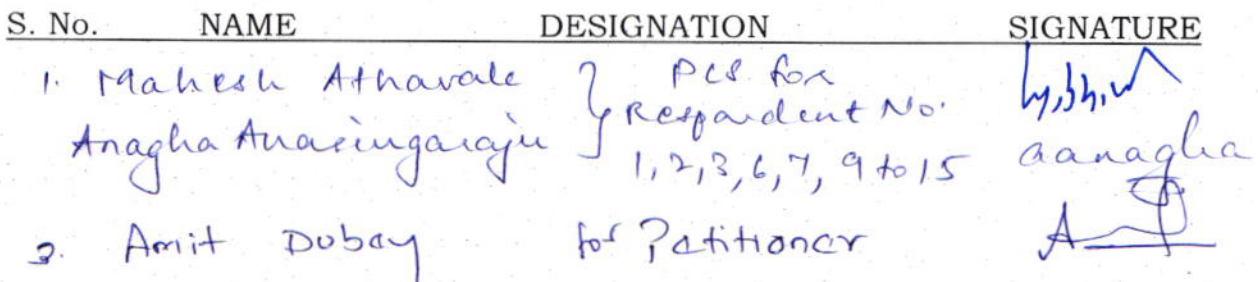 S. No. NAME DESIGNATION SIGNATURE
1. Mahesh Athavale } PCS for
Anagha Anasingaraju Respondent No.
1,2,3,6,7, 9 to 15 aanagha
2. Amit Dubey for Petitioner